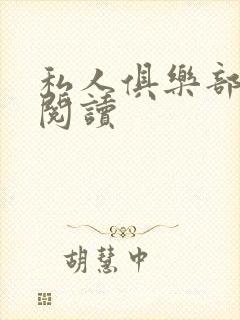 私人俱樂部
閱讀
胡慧中